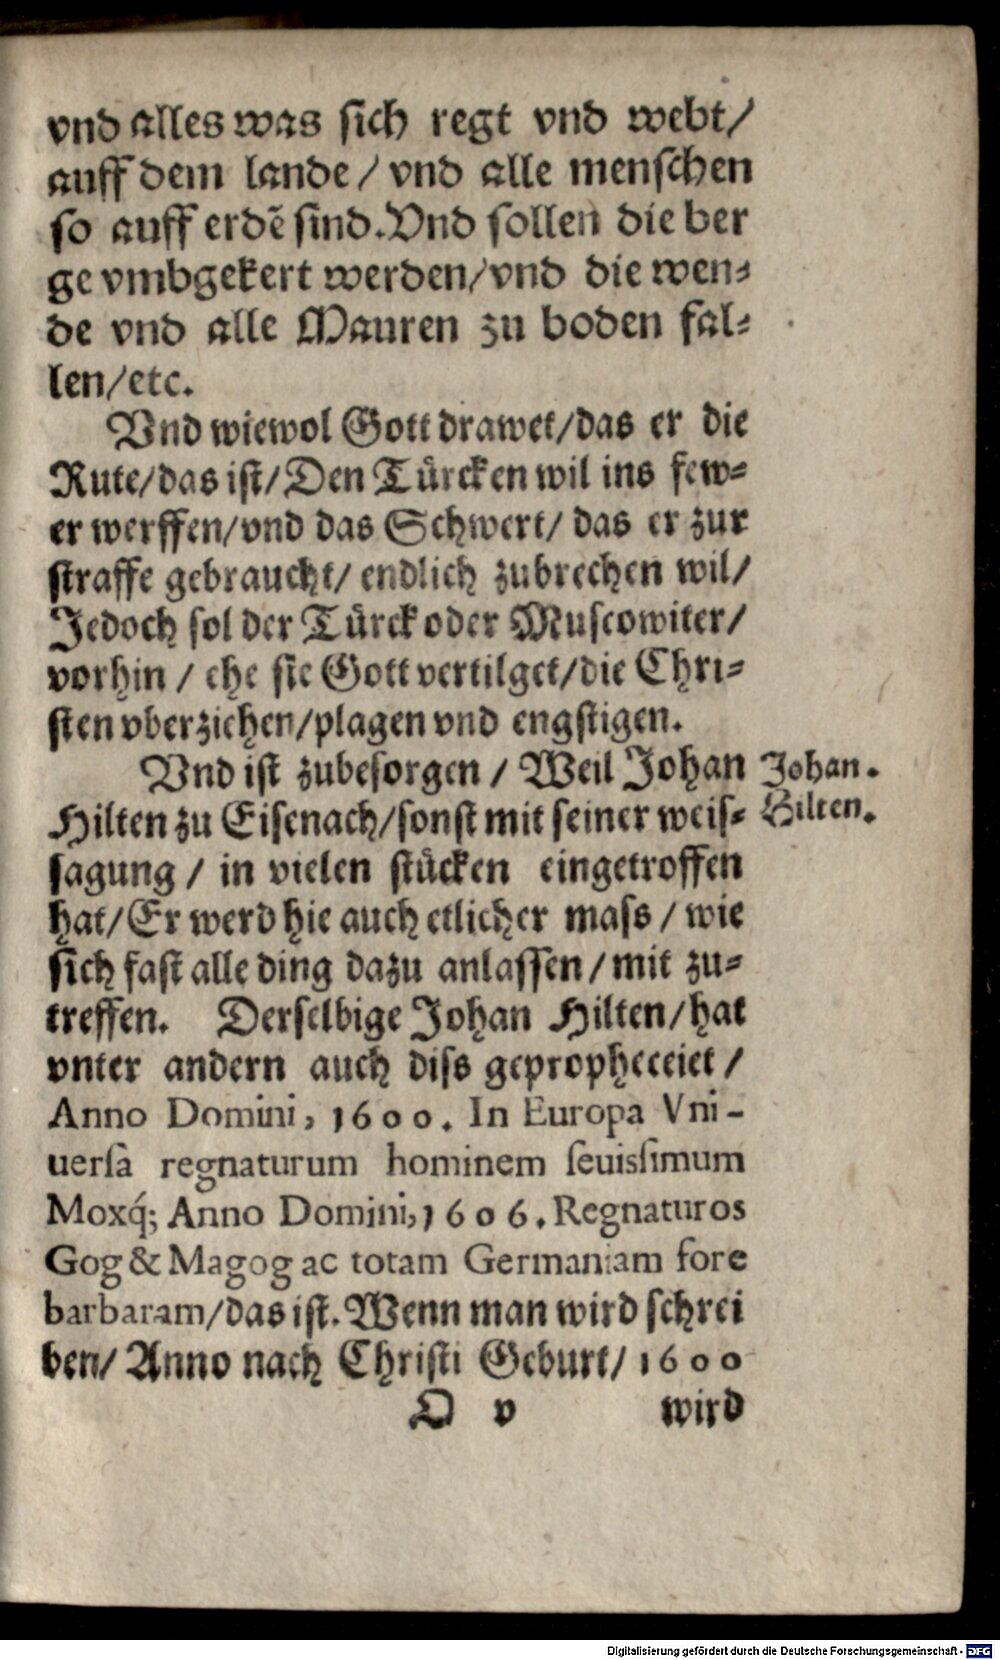 vnd alles was sich regt vnd webt/
auff dem lande / vnd alle menschen
so auff erdē sind. Vnd sollen die ber
ge vmbgekert werden/vnd die wen-
de vnd alle Mauren zu boden fal-
len/etc.
Vnd wiewol Gott drawet/das er die
Rute/das ist/Den Türcken wil ins few-
er werffen/vnd das Schwert/ das er zur
straffe gebraucht/ endlich zubrechen wil/
Jedoch sol der Türck oder Muscowiter/
vorhin / ehe sie Gott vertilget/die Chri-
sten vberziehen/plagen vnd engstigen.
Vnd ist zubesorgen / Weil Johan
Johan.
Hilten zu Eisenach/sonst mit seiner weis-
Hilten.
sagung / in vielen stücken eingetroffen
hat/Er werd hie auch etlicher mass / wie
sich fast alle ding dazu anlassen/mit zu-
treffen. Derselbige Johan Hilten/hat
vnter andern auch diss gepropheceiet /
Anno Domini, 1600. In Europa Vni-
uersa regnaturum hominem seuissimum
Moxq́; Anno Domini, 1606. Regnaturos
Gog & Magog ac totam Germaniam fore
barbaram/das ist. Wenn man wird schrei
ben/ Anno nach Christi Geburt/ 1600
O v wird
Digitalisierung gefördert durch die Deutsche Forschungsgemeinschaft - DFG